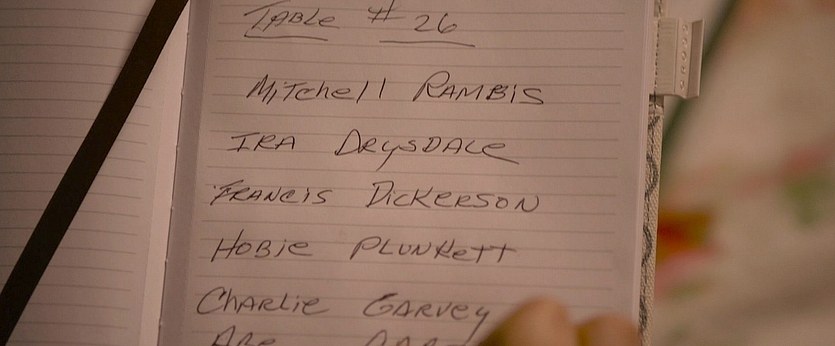 TABLE # 26
Mitchell RAMBIS
IRA DRYSDALE
FRANCIS DICKERSON
HOBIE PLUNKETT
CHARLIE GARVEY